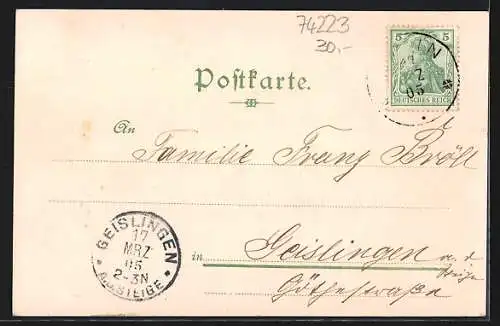 74223
30,-
5 5
DEUTSCHES REICH
MRZ
05
Postkarte.
An
Familie Franz Bröll
GEISLINGEN
17
MRZ
05
2-3N
A.D. STEIGE
in Geislingen a. d.
Steige
Göthestraße